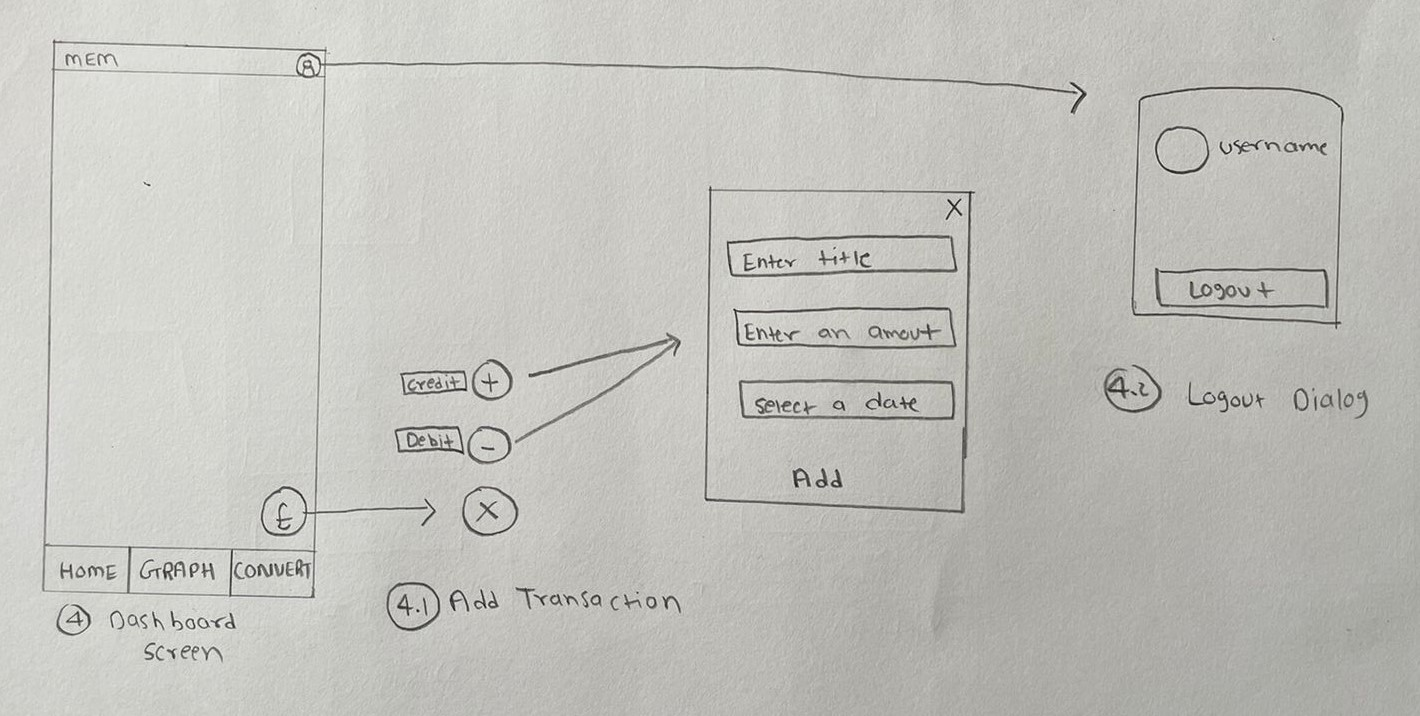 MEM
HOME GRAPH CONVERT
£
4 Dashboard
Screen
Credit +
Debit -
X
4.1 Add Transaction
X
Enter title
Enter an amout
Select a date
Add
username
Logout
4.2 Logout Dialog